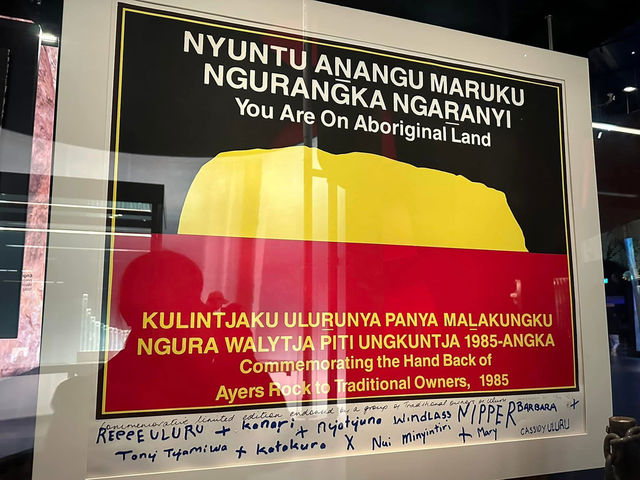 NYUNTU AṈANGU MARUKU
NGURANGKA NGAṞANYI
You Are On Aboriginal Land
KULINTJAKU ULUṞUNYA PANYA MALAKUNGKU
NGURA WALYTJA PITI UNGKUNTJA 1985-ANGKA
Commemorating the Hand Back of
Ayers Rock to Traditional Owners, 1985
Commemorative limited edition endorsed by a group of Traditional owners
REGGE ULURU + Konori + Nyotyuno WindLASS NIPPER BARBARA +
Tony Tjamiwa + Katakura X Nui Minyintiri + Mary CASSIDY ULURU